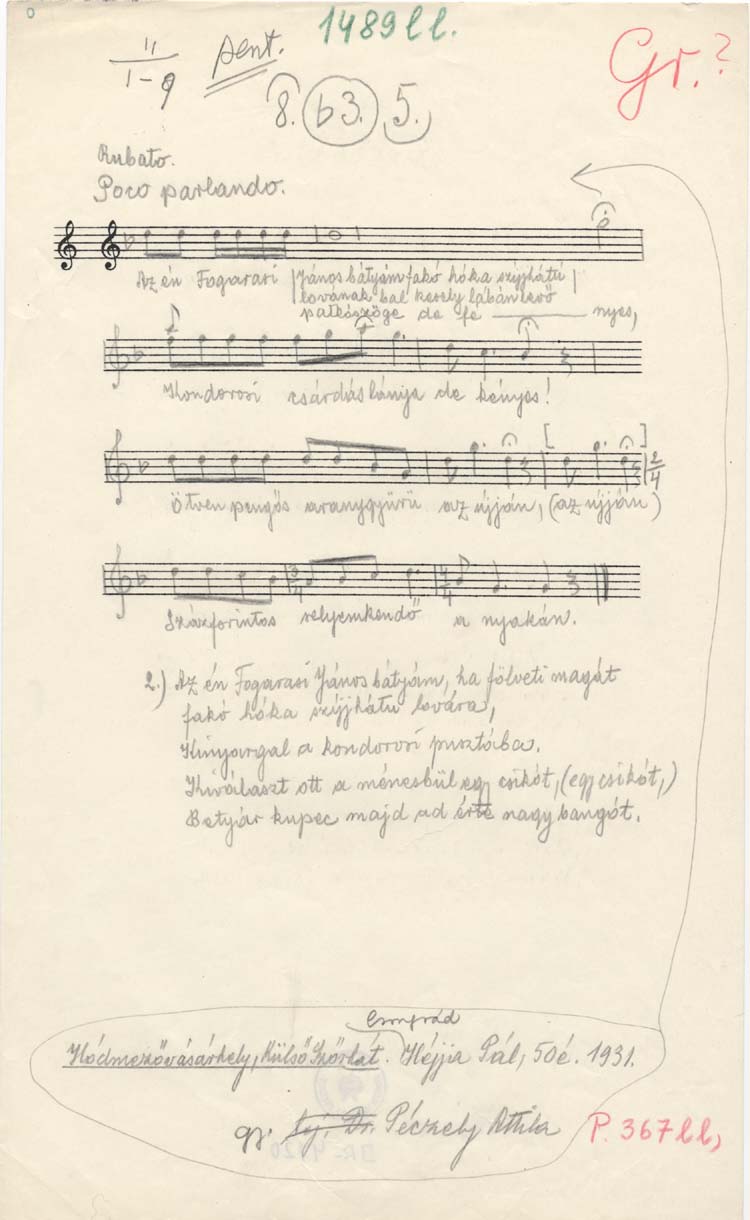 1489 ll.
II
I-9
pent.
8. b3. 5.
Gr.?
Rubato.
Poco parlando.
Az én Fogarasi János bátyám fakó hóka szíjjhátú
lovának bal kesely lábán levő
patkószöge de fé nyes,
Kondorosi csárdás lánya de kényes!
2
4
Ötven pengős aranygyűrű az újján, (az újján)
3
4
4
4
Százforintos selyemkendő a nyakán.
2.) Az én Fogarasi János bátyám, ha fölveti magát
fakó hóka szíjjhátú lovára,
Kinyargal a kondorosi pusztába.
Kiválaszt ott a ménesbül egy csikót, (egy csikót,)
Betyár kupec majd ad érte nagy bangót.
Csongrád
Hódmezővásárhely, Külső Szőrlát. Héjjia Pál, 50é. 1931.
gy. Dr. Péczely Attila
P. 367 ll,